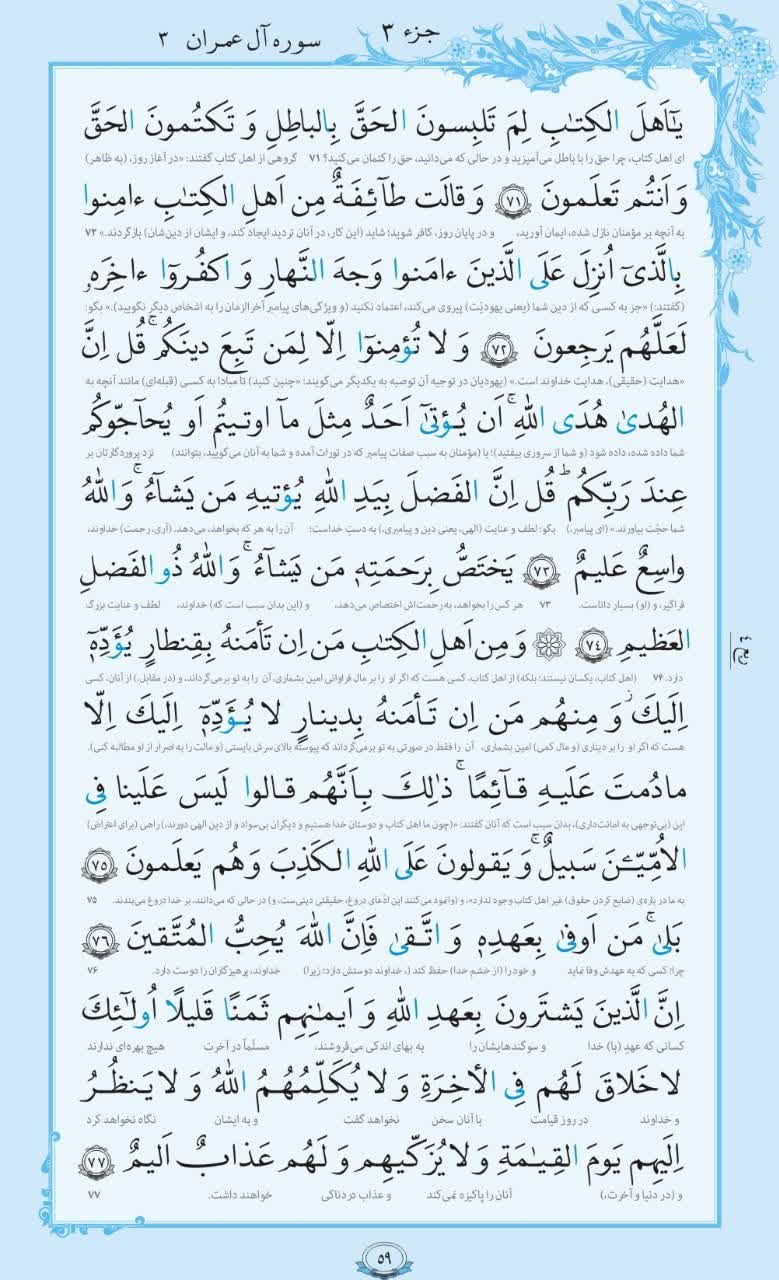 جزء ۳
سوره آل عمران ۳
یٰۤاَهلَ الکِتٰبِ لِمَ تَلبِسونَ الحَقَّ بِالباطِلِ وَ تَکتُمونَ الحَقَّ
ای اهل کتاب، چرا حق را با باطل می‌آمیزید و در حالی که می‌دانید، حق را کتمان می‌کنید؟ ۷۱ گروهی از اهل کتاب گفتند: «در آغاز روز، (به ظاهر)
وَ اَنتُم تَعلَمونَ ﴿۷۱﴾ وَ قالَت طآئِفَةٌ مِن اَهلِ الکِتٰبِ ءامِنوا
به آنچه بر مؤمنان نازل شده، ایمان آورید، و در پایان روز، کافر شوید؛ شاید (این کار، در آنان تردید ایجاد کند، و ایشان از دین‌شان) بازگردند.» ۷۲
بِالَّذیۤ اُنزِلَ عَلَی الَّذینَ ءامَنوا وَجهَ النَّهارِ وَ اکفُروۤا ءاخِرَهٖ
(گفتند:) «جز به کسی که از دین شما (یعنی یهودیّت) پیروی می‌کند، اعتماد نکنید (و ویژگی‌های پیامبر آخرالزمان را به اشخاص دیگر نگویید).» بگو:
لَعَلَّهُم یَرجِعونَ ﴿۷۲﴾ وَ لا تُؤمِنوۤا اِلّا لِمَن تَبِعَ دینَکُم ۚ قُل اِنَّ
«هدایت (حقیقی)، هدایت خداوند است.» (یهودیان در توجیه آن توصیه به یکدیگر می‌گویند: «چنین کنید) تا مبادا به کسی (قبله‌ای) مانند آنچه به
الهُدیٰ هُدَی اللّٰهِ ۚ اَن یُؤتیٰۤ اَحَدٌ مِثلَ ماۤ اوتیتُم اَو یُحآجّوکُم
شما داده شده، داده شود (و شما از سروری بیفتید)؛ یا (مؤمنان به سبب صفات پیامبر که در تورات آمده و شما به آنان می‌گویید، بتوانند) نزد پروردگارتان بر
عِندَ رَبِّکُم ؕ قُل اِنَّ الفَضلَ بِیَدِ اللّٰهِ یُؤتیهِ مَن یَشآءُ ۚ وَ اللّٰهُ
شما حجّت بیاورند.» (ای پیامبر،) بگو: لطف و عنایت (الهی، یعنی دین و پیامبری،) به دست خداست؛ آن را به هر که بخواهد، می‌دهد. (آری، رحمت) خداوند،
واسِعٌ عَلیمٌ ﴿۷۳﴾ یَختَصُّ بِرَحمَتِهٖ مَن یَشآءُ ۚ وَ اللّٰهُ ذُو الفَضلِ
فراگیر، و (او) بسیار داناست. ۷۳ هر کس را بخواهد، به رحمت‌اش اختصاص می‌دهد، و (این بدان سبب است که) خداوند، لطف و عنایت بزرگ
العَظیمِ ﴿۷۴﴾ ۞ وَ مِن اَهلِ الکِتٰبِ مَن اِن تَأمَنهُ بِقِنطارٍ یُؤَدِّهٖۤ
ربع ٤
دارد. ۷۴ (اهل کتاب، یکسان نیستند؛ بلکه) از اهل کتاب، کسی هست که اگر او را بر مال فراوانی امین بشماری، آن را به تو بر می‌گرداند، و (در مقابل،) از آنان، کسی
اِلَیکَ ۚ وَ مِنهُم مَن اِن تَأمَنهُ بِدینارٍ لا یُؤَدِّهٖۤ اِلَیکَ اِلّا
هست که اگر او را بر دیناری (و مال کمی) امین بشماری، آن را فقط در صورتی به تو بر می‌گرداند که پیوسته بالای سرش بایستی (و مالت را به اصرار از او مطالبه کنی).
مادُمتَ عَلَیهِ قآئِمًا ۚ ذٰلِکَ بِاَنَّهُم قالوا لَیسَ عَلَینا فِی
این (بی‌توجهی به امانت‌داری)، بدان سبب است که آنان گفتند: «(چون ما اهل کتاب و دوستان خدا هستیم و دیگران بی‌سواد و از دین الهی دورند،) راهی (برای اعتراض)
الاُمِّیّٖنَ سَبیلٌ ۚ وَ یَقولونَ عَلَی اللّٰهِ الکَذِبَ وَ هُم یَعلَمونَ ﴿۷۵﴾
به ما در باره‌ی (ضایع کردن حقوق) غیر اهل کتاب وجود ندارد»، و (وانمود می‌کنند این ادّعای دروغ، حقیقتی دینی‌ست، و) در حالی که می‌دانند، بر خدا دروغ می‌بندند. ۷۵
بَلیٰ ۚ مَن اَوفیٰ بِعَهدِهٖ وَ اتَّقیٰ فَاِنَّ اللّٰهَ یُحِبُّ المُتَّقینَ ﴿۷۶﴾
چرا؛ کسی که به عهدش وفا نماید و خود را (از خشم خدا) حفظ کند (، خداوند دوستش دارد؛ زیرا) خداوند، پرهیزگاران را دوست دارد. ۷۶
اِنَّ الَّذینَ یَشتَرونَ بِعَهدِ اللّٰهِ وَ اَیمٰنِهِم ثَمَنًا قَلیلًا اُولٰٓئِکَ
کسانی که عهدِ (با) خدا و سوگندهایشان را به بهای اندکی می‌فروشند، مسلّماً در آخرت هیچ بهره‌ای ندارند
لا خَلاقَ لَهُم فِی الاٰخِرَةِ وَ لا یُکَلِّمُهُمُ اللّٰهُ وَ لا یَنظُرُ
و خداوند در روز قیامت با آنان سخن نخواهد گفت و به ایشان نگاه نخواهد کرد
اِلَیهِم یَومَ القِیٰمَةِ وَ لا یُزَکّیهِم وَ لَهُم عَذابٌ اَلیمٌ ﴿۷۷﴾
و (در دنیا و آخرت،) آنان را پاکیزه نمی‌کند و عذاب دردناکی خواهند داشت. ۷۷
۵۹